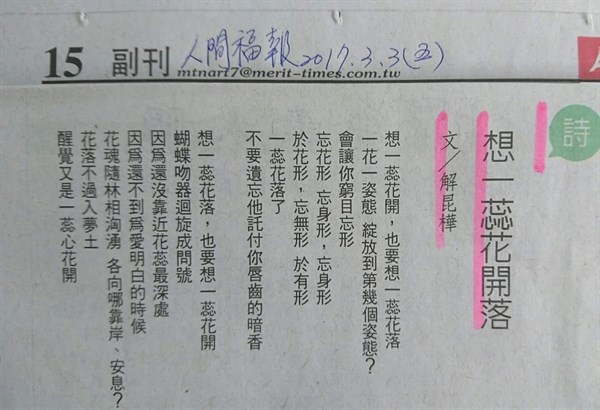 15 副刊 人間福報 2017.3.3(五)
mtnart7@merit-times.com.tw
詩
想一蕊花開落
文／解昆樺
想一蕊花開，也要想一蕊花落
一花一姿態 綻放到第幾個姿態？
會讓你窮目忘形
忘花形 忘身形，忘身形
於花形，忘無形 於有形
一蕊花落了
不要遺忘他託付你唇齒的暗香
想一蕊花落，也要想一蕊花開
蝴蝶吻器迴旋成問號
因為還沒靠近花蕊最深處
因為還不到為愛明白的時候
花魂隨林相洶湧 各向哪靠岸、安息？
花落不過入夢土
醒覺又是一蕊心花開